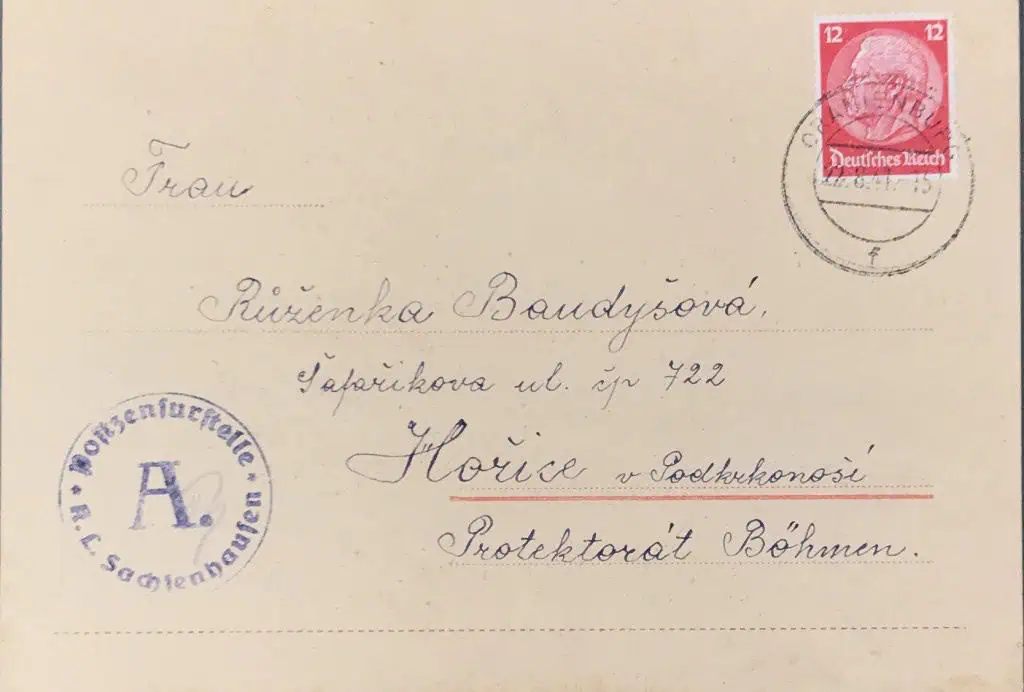 12 12
Deutsches Reich
ORANIENBURG
22.8.41.-15
f
Frau
Růženka Baudyšová,
Šafaříkova ul. čp 722
Hořice v Podkrkonoší
Protektorát Böhmen.
Postzensurstelle
A.
K.L. Sachsenhausen